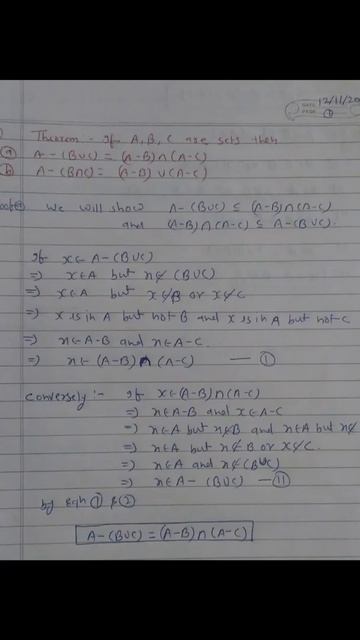 12/11/20
DATE
PAGE ①
) Theorem - If A, B, C are sets then
(a) A - (B∪C) = (A-B)∩(A-C)
(b) A - (B∩C) = (A-B) ∪ (A-C)
We will show A - (B∪C) ⊆ (A-B)∩(A-C)
and (A-B)∩(A-C) ⊆ A-(B∪C).
If x∈A-(B∪C)
⇒ x∈A but x∉(B∪C)
⇒ x∈A but x∉B or x∉C
⇒ x is in A but not B and x is in A but not C
⇒ x∈A-B and x∈A-C.
⇒ x∈(A-B)∩(A-C) — ①
Conversely :- If x∈(A-B)∩(A-C)
⇒ x∈A-B and x∈A-C
⇒ x∈A but x∉B and x∈A but x∉
⇒ x∈A but x∉B or x∉C.
⇒ x∈A and x∉(B∪C)
⇒ x∈A-(B∪C) — ⑪
by eqn ① & ②
A-(B∪C) = (A-B)∩(A-C)